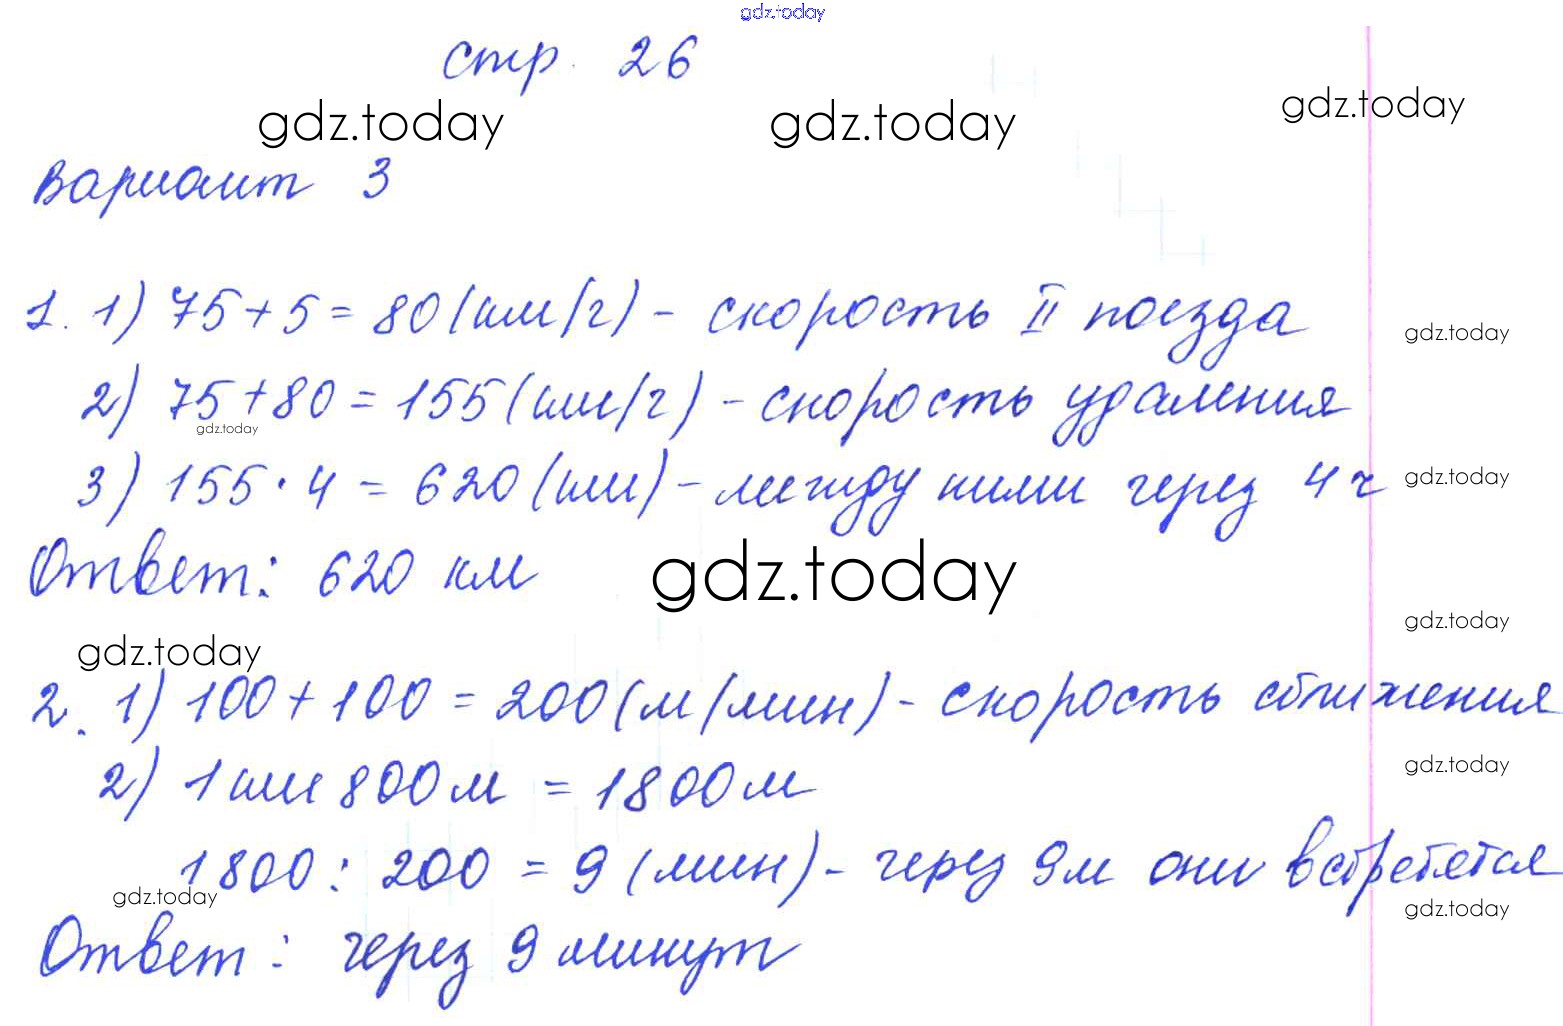 gdz.today
стр. 26
gdz.today gdz.today gdz.today
Вариант 3
1. 1) 75 + 5 = 80 (км/ч) - скорость II поезда
gdz.today
2) 75 + 80 = 155 (км/ч) - скорость удаления
gdz.today
3) 155 · 4 = 620 (км) - между ними через 4 ч
gdz.today
Ответ: 620 км
gdz.today
gdz.today
gdz.today
2. 1) 100 + 100 = 200 (м/мин) - скорость сближения
gdz.today
2) 1 км 800 м = 1800 м
1800 : 200 = 9 (мин) - через 9 м они встретятся
gdz.today
gdz.today
Ответ: через 9 минут